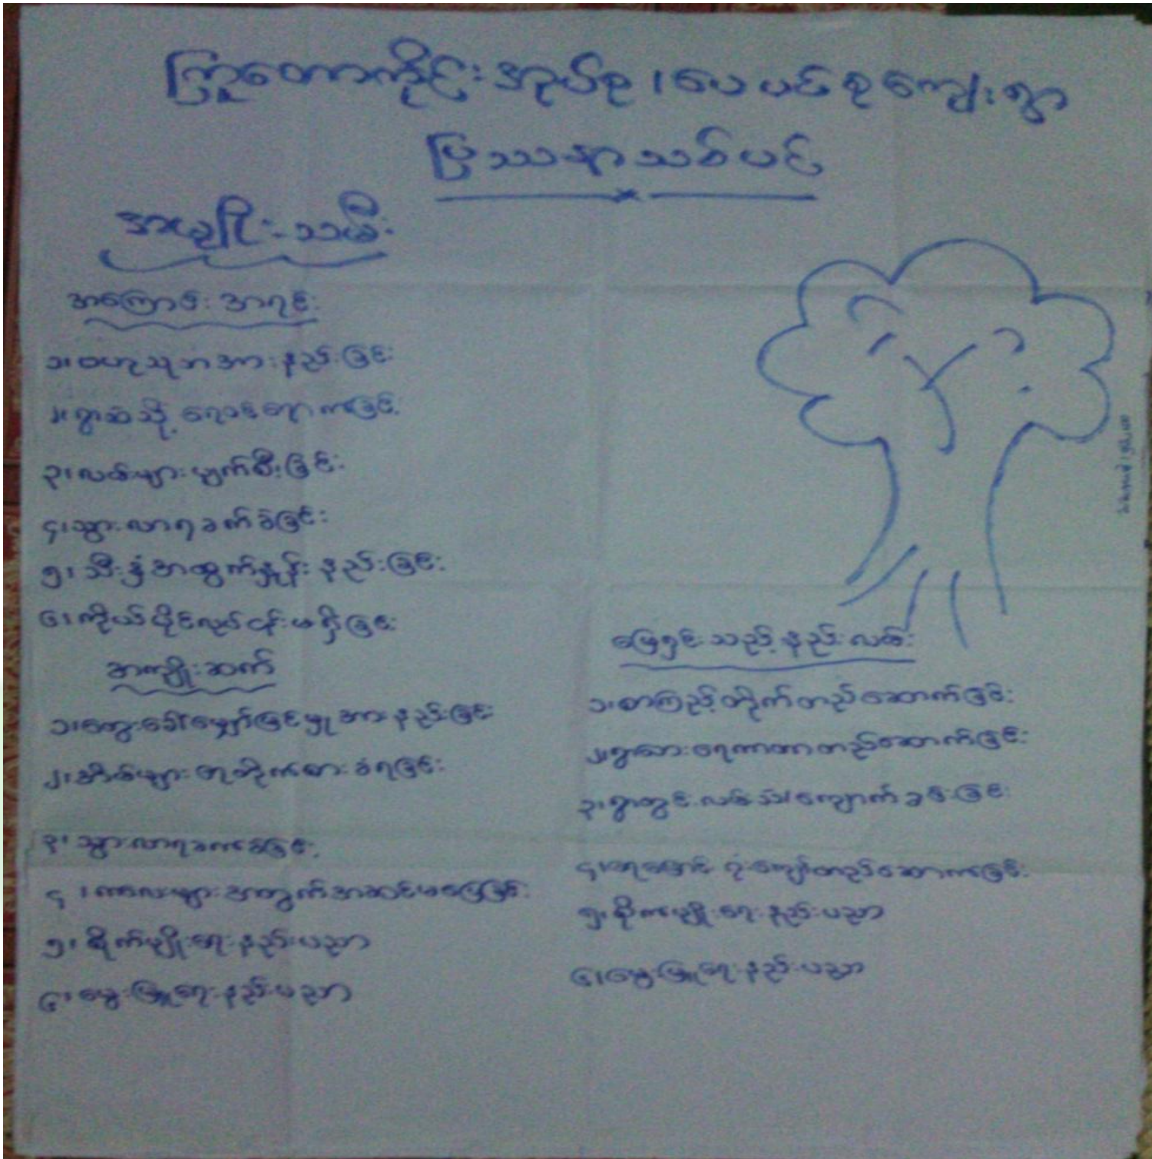 ကြူတောကိုင်းအုပ်စု၊ပေပင်စုကျေးရွာ
ပြဿနာသစ်ပင်
အမျိုးသမီး
အကြောင်းအရင်း
၁၊ ဗဟုသုတအားနည်းခြင်း
၂၊ ရွာထဲသို့ရေဝင်ရောက်ခြင်း
၃၊ လမ်းများပျက်စီးခြင်း
၄၊ သွားလာရခက်ခဲခြင်း
၅၊ သီးနှံအထွက်နှုန်းနည်းခြင်း
၆၊ ကိုယ်ပိုင်လုပ်ငန်းမရှိခြင်း
အကျိုးဆက်
၁၊ တွေးခေါ်မျှော်မြင်မှုအားနည်းခြင်း
၂၊ အိမ်များရေတိုက်စားခံရခြင်း
၃၊ သွားလာရခက်ခဲခြင်း
၄၊ ကလေးများအတွက်အဆင်မပြေခြင်း
၅၊ စိုက်ပျိုးရေးနည်းပညာ
၆၊ မွေးမြူရေးနည်းပညာ
ဖြေရှင်းသည့်နည်းလမ်း
၁၊ စာကြည့်တိုက်တည်ဆောက်ခြင်း
၂၊ ရွာဘေးရေကာတာတည်ဆောက်ခြင်း
၃၊ ရွာတွင်းလမ်းကျောက်ခင်းခြင်း
၄၊ တည်ဆောက်ခြင်း
၅၊ စိုက်ပျိုးရေးနည်းပညာ
၆၊ မွေးမြူရေးနည်းပညာ